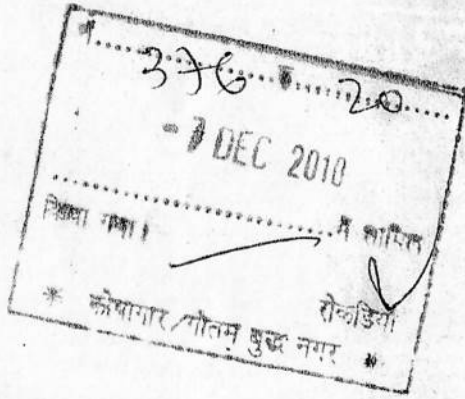 376 20
DEC 2010
में शामिल
किया गया।
रोकड़िया
* कोषागार/गौतम बुद्ध नगर *